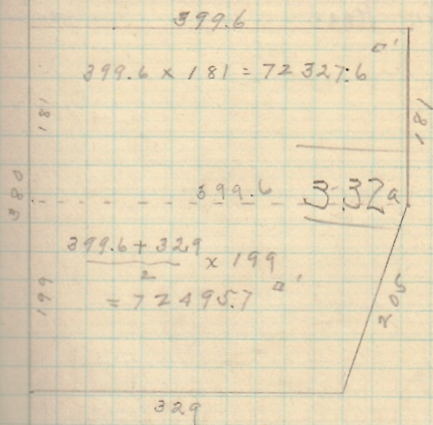 399.6
399.6 × 181 = 72327.6 □'
181
181
380
399.6
3.32a
399.6 + 329
2
× 199
= 72495.7 □'
199
205
329